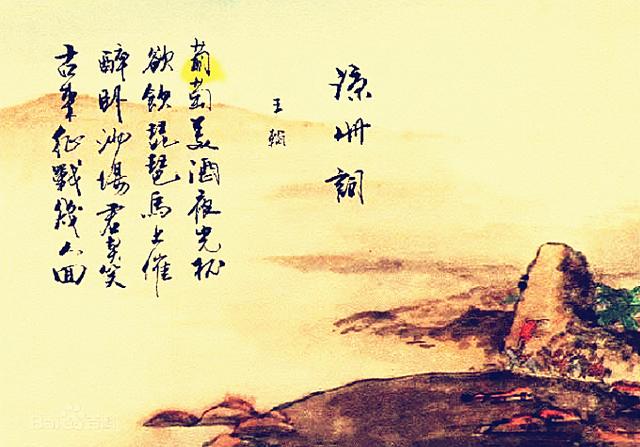 涼州詞
王翰
葡萄美酒夜光杯
欲飲琵琶馬上催
醉卧沙場君莫笑
古来征戰幾人回
Baidu百科